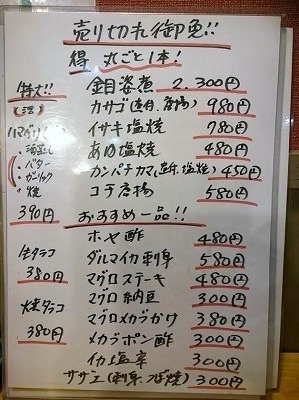 売り切れ御免!!
得 丸ごと1本!
金目姿煮 2.300円
カサゴ(造身.唐揚) 980円
イサキ塩焼 780円
あゆ塩焼 480円
カンパチカマ(煮.塩焼) 480円
コチ唐揚 580円
おすすめ一品!!
ホヤ酢 480円
ダルマイカ刺身 580円
マグロステーキ 480円
マグロ納豆 300円
マグロメカブかけ 380円
メカブポン酢 300円
イカ塩辛 300円
サザエ(刺身.つぼ焼) 300円
特大!!
(活)
ハマグリ
・酒蒸し
・バター
・ガーリック
・焼
390円
生タラコ
380円
焼タラコ
380円